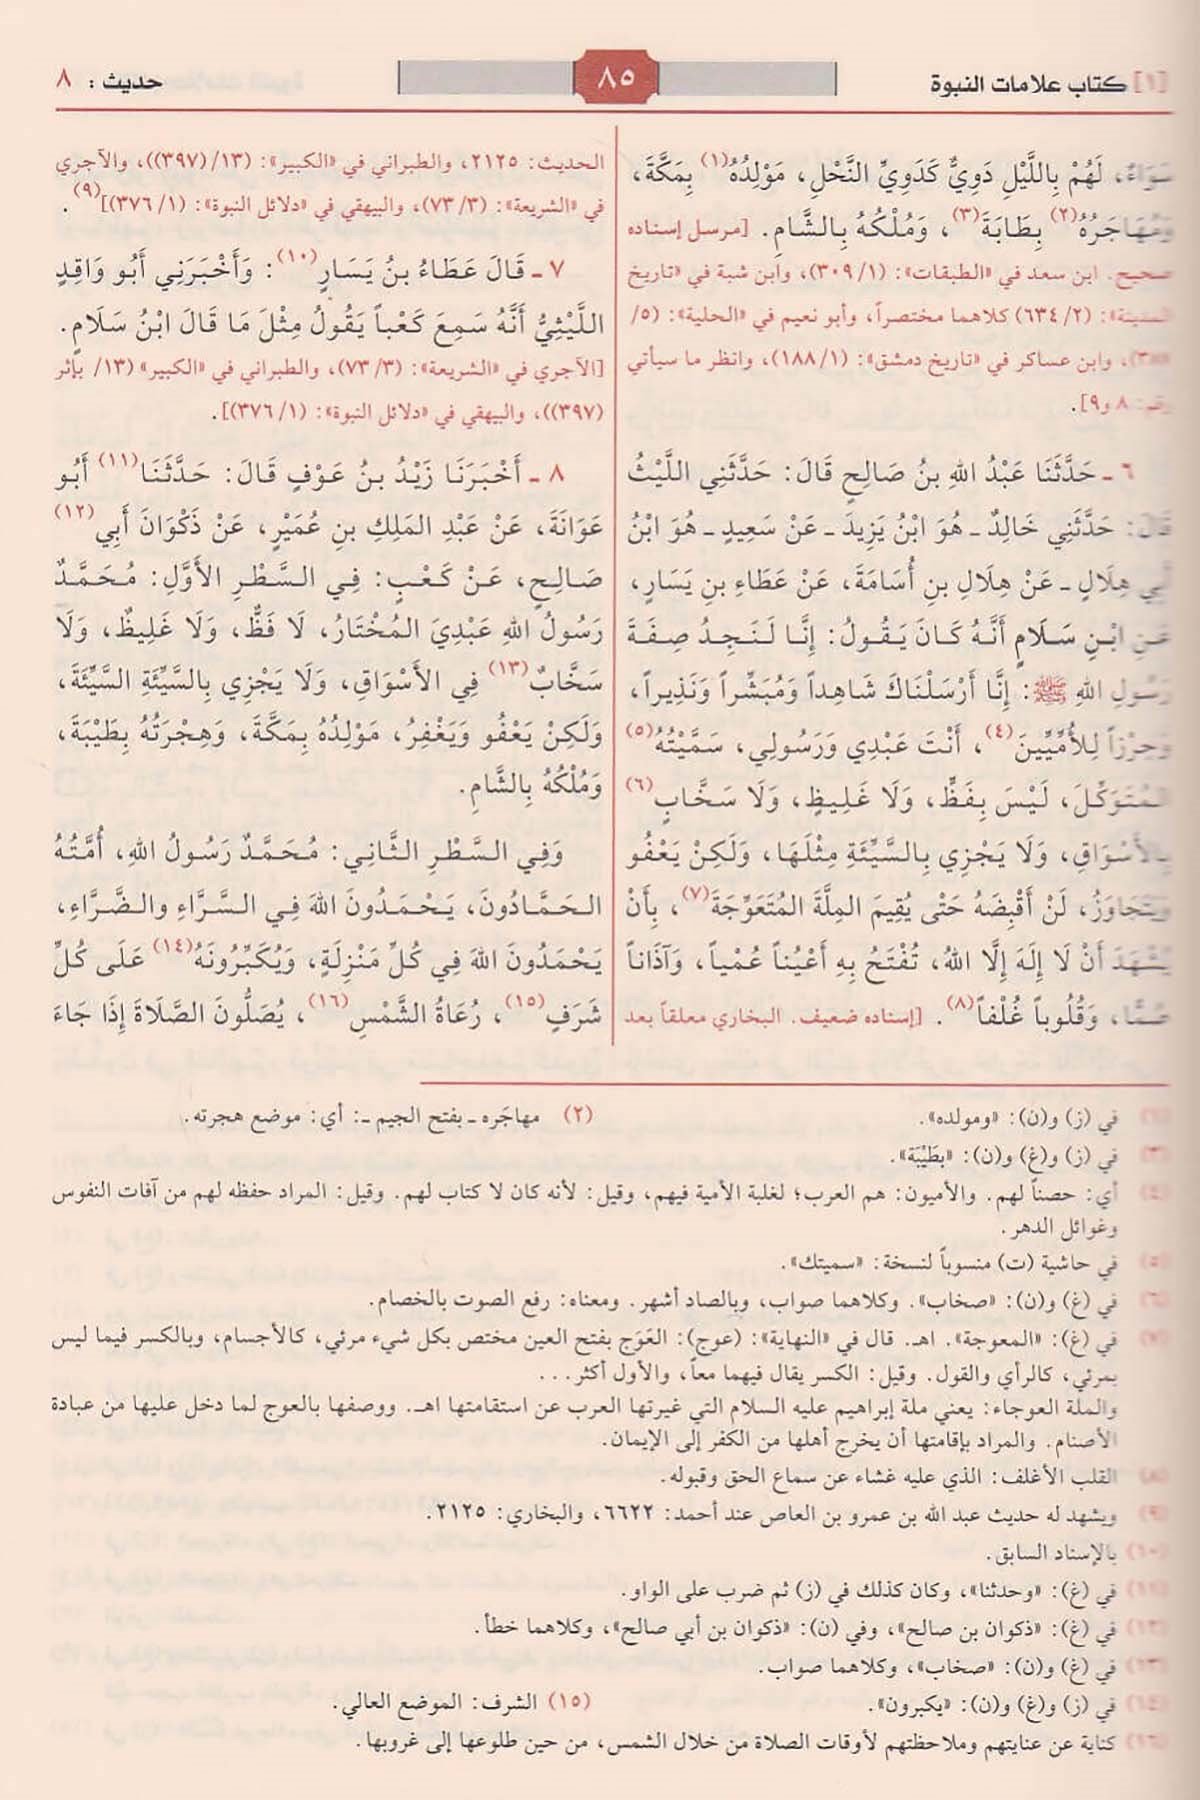 [١] كتاب علامات النبوة
٨٥
حديث : ٨
سَوَاءٌ، لَهُمْ بِاللَّيْلِ دَوِيٌّ كَدَوِيِّ النَّحْلِ، مَوْلِدُهُ(١) بِمَكَّةَ،
وَمُهَاجَرُهُ(٢) بِطَابَةَ(٣)، وَمُلْكُهُ بِالشَّامِ. [مرسل إسناده
صحيح. ابن سعد في «الطبقات»: (١/ ٣٠٩)، وابن شبة في «تاريخ
المدينة»: (٢/ ٦٣٤) كلاهما مختصراً، وأبو نعيم في «الحلية»: (٥/
، وابن عساكر في «تاريخ دمشق»: (١/ ١٨٨)، وانظر ما سيأتي
رقم: ٨ و٩].
٦ ـ حَدَّثَنَا عَبْدُ اللهِ بنُ صَالِحٍ قَالَ: حَدَّثَنِي اللَّيْثُ
قَالَ: حَدَّثَنِي خَالِدٌ ـ هُوَ ابْنُ يَزِيدَ ـ عَنْ سَعِيدٍ ـ هُوَ ابْنُ
أَبِي هِلَالٍ ـ عَنْ هِلَالِ بنِ أُسَامَةَ، عَنْ عَطَاءِ بنِ يَسَارٍ،
عَنِ ابْنِ سَلَامٍ أَنَّهُ كَانَ يَقُولُ: إِنَّا لَنَجِدُ صِفَةَ
رَسُولِ اللهِ ﷺ: إِنَّا أَرْسَلْنَاكَ شَاهِداً وَمُبَشِّراً وَنَذِيراً،
وَحِرْزاً لِلأُمِّيِّينَ(٤)، أَنْتَ عَبْدِي وَرَسُولِي، سَمَّيْتُهُ(٥)
المُتَوَكِّلَ، لَيْسَ بِفَظٍّ، وَلَا غَلِيظٍ، وَلَا سَخَّابٍ(٦)
بِالأَسْوَاقِ، وَلَا يَجْزِي بِالسَّيِّئَةِ مِثْلَهَا، وَلَكِنْ يَعْفُو
وَيَتَجَاوَزُ، لَنْ أَقْبِضَهُ حَتَّى يُقِيمَ المِلَّةَ المُتَعَوِّجَةَ(٧)، بِأَنْ
يُشْهَدَ أَنْ لَا إِلَهَ إِلَّا اللهُ، تُفْتَحُ بِهِ أَعْيُناً عُمْياً، وَآذَاناً
صُمًّا، وَقُلُوباً غُلْفاً(٨). [إسناده ضعيف. البخاري معلقاً بعد
الحديث: ٢١٢٥، والطبراني في «الكبير»: (١٣/ (٣٩٧))، والآجري
في «الشريعة»: (٣/ ٧٣)، والبيهقي في «دلائل النبوة»: (١/ ٣٧٦)](٩).
٧ ـ قَالَ عَطَاءُ بنُ يَسَارٍ(١٠): وَأَخْبَرَنِي أَبُو وَاقِدٍ
اللَّيْثِيُّ أَنَّهُ سَمِعَ كَعْباً يَقُولُ مِثْلَ مَا قَالَ ابْنُ سَلَامٍ.
[الآجري في «الشريعة»: (٣/ ٧٣)، والطبراني في «الكبير» (١٣/ بإثر
(٣٩٧))، والبيهقي في «دلائل النبوة»: (١/ ٣٧٦)].
٨ ـ أَخْبَرَنَا زَيْدُ بنُ عَوْفٍ قَالَ: حَدَّثَنَا(١١) أَبُو
عَوَانَةَ، عَنْ عَبْدِ المَلِكِ بنِ عُمَيْرٍ، عَنْ ذَكْوَانَ أَبِي(١٢)
صَالِحٍ، عَنْ كَعْبٍ: فِي السَّطْرِ الأَوَّلِ: مُحَمَّدٌ
رَسُولُ اللهِ عَبْدِيَ المُخْتَارُ، لَا فَظٌّ، وَلَا غَلِيظٌ، وَلَا
سَخَّابٌ(١٣) فِي الأَسْوَاقِ، وَلَا يَجْزِي بِالسَّيِّئَةِ السَّيِّئَةَ،
وَلَكِنْ يَعْفُو وَيَغْفِرُ، مَوْلِدُهُ بِمَكَّةَ، وَهِجْرَتُهُ بِطَيْبَةَ،
وَمُلْكُهُ بِالشَّامِ.
وَفِي السَّطْرِ الثَّانِي: مُحَمَّدٌ رَسُولُ اللهِ، أُمَّتُهُ
الحَمَّادُونَ، يَحْمَدُونَ اللهَ فِي السَّرَّاءِ والضَّرَّاءِ،
يَحْمَدُونَ اللهَ فِي كُلِّ مَنْزِلَةٍ، وَيُكَبِّرُونَهُ(١٤) عَلَى كُلِّ
شَرَفٍ(١٥)، رُعَاةُ الشَّمْسِ(١٦)، يُصَلُّونَ الصَّلَاةَ إِذَا جَاءَ
(١) في (ز) و(ن): «ومولده». (٢) مهاجَره ـ بفتح الجيم ـ: أي: موضع هجرته.
(٣) في (ز) و(غ) و(ن): «بطَيْبَة».
(٤) أي: حصناً لهم. والأميون: هم العرب؛ لغلبة الأمية فيهم، وقيل: لأنه كان لا كتاب لهم. وقيل: المراد حفظه لهم من آفات النفوس
وغوائل الدهر.
(٥) في حاشية (ت) منسوباً لنسخة: «سميتك».
(٦) في (غ) و(ن): «صخاب». وكلاهما صواب، وبالصاد أشهر. ومعناه: رفع الصوت بالخصام.
(٧) في (غ): «المعوجة». اهـ. قال في «النهاية»: (عوج): العَوَج بفتح العين مختص بكل شيء مرئي، كالأجسام، وبالكسر فيما ليس
بمرئي، كالرأي والقول. وقيل: الكسر يقال فيهما معاً، والأول أكثر...
والملة العوجاء: يعني ملة إبراهيم عليه السلام التي غيرتها العرب عن استقامتها اهـ. ووصفها بالعوج لما دخل عليها من عبادة
الأصنام. والمراد بإقامتها أن يخرج أهلها من الكفر إلى الإيمان.
(٨) القلب الأغلف: الذي عليه غشاء عن سماع الحق وقبوله.
(٩) ويشهد له حديث عبد الله بن عمرو بن العاص عند أحمد: ٦٦٢٢، والبخاري: ٢١٢٥.
(١٠) بالإسناد السابق.
(١١) في (غ): «وحدثنا»، وكان كذلك في (ز) ثم ضرب على الواو.
(١٢) في (غ): «ذكوان بن صالح»، وفي (ن): «ذكوان بن أبي صالح»، وكلاهما خطأ.
(١٣) في (غ) و(ن): «صخاب»، وكلاهما صواب.
(١٤) في (ز) و(غ) و(ن): «يكبرون». (١٥) الشرف: الموضع العالي.
(١٦) كناية عن عنايتهم وملاحظتهم لأوقات الصلاة من خلال الشمس، من حين طلوعها إلى غروبها.